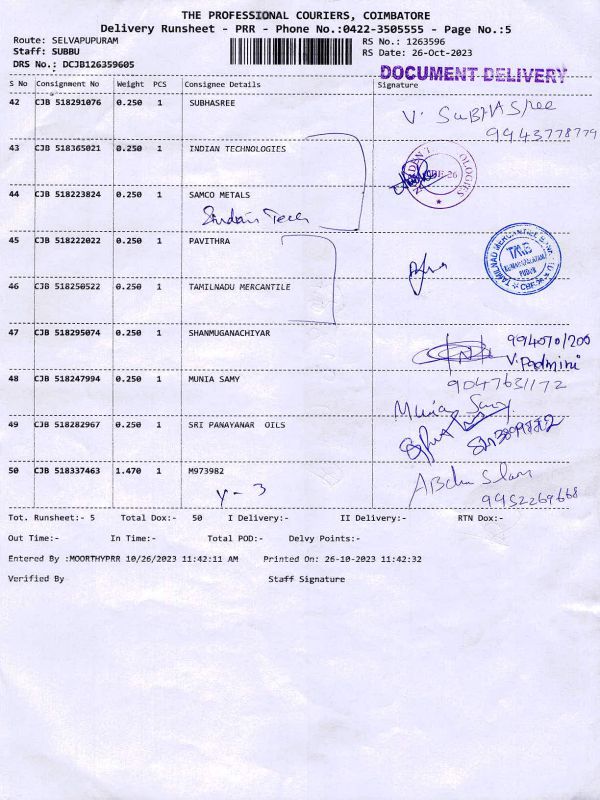 THE PROFESSIONAL COURIERS, COIMBATORE
Delivery Runsheet - PRR - Phone No.:0422-3505555 - Page No.:5
Route: SELVAPUPURAM RS No.: 1263596
Staff: SUBBU RS Date: 26-Oct-2023
DRS No.: DCJB126359605
DOCUMENT DELIVERY
S No Consignment No Weight PCS Consignee Details Signature
42 CJB 518291076 0.250 1 SUBHASREE V. SUBHASree
9943778779
43 CJB 518365021 0.250 1 INDIAN TECHNOLOGIES
44 CJB 518223824 0.250 1 SAMCO METALS
Indian Tech
45 CJB 518222022 0.250 1 PAVITHRA
TAMILNAD MERCANTILE BANK
TMB
CBE
46 CJB 518250522 0.250 1 TAMILNADU MERCANTILE
47 CJB 518295074 0.250 1 SHANMUGANACHIYAR
V. Padmini
48 CJB 518247994 0.250 1 MUNIA SAMY 9047631172
Munia Samy
49 CJB 518282967 0.250 1 SRI PANAYANAR OILS
50 CJB 518337463 1.470 1 M973982
Y - 3 9952269668
Tot. Runsheet:- 5 Total Dox:- 50 I Delivery:- II Delivery:- RTN Dox:-
Out Time:- In Time:- Total POD:- Delvy Points:-
Entered By :MOORTHYPRR 10/26/2023 11:42:11 AM Printed On: 26-10-2023 11:42:32
Verified By Staff Signature